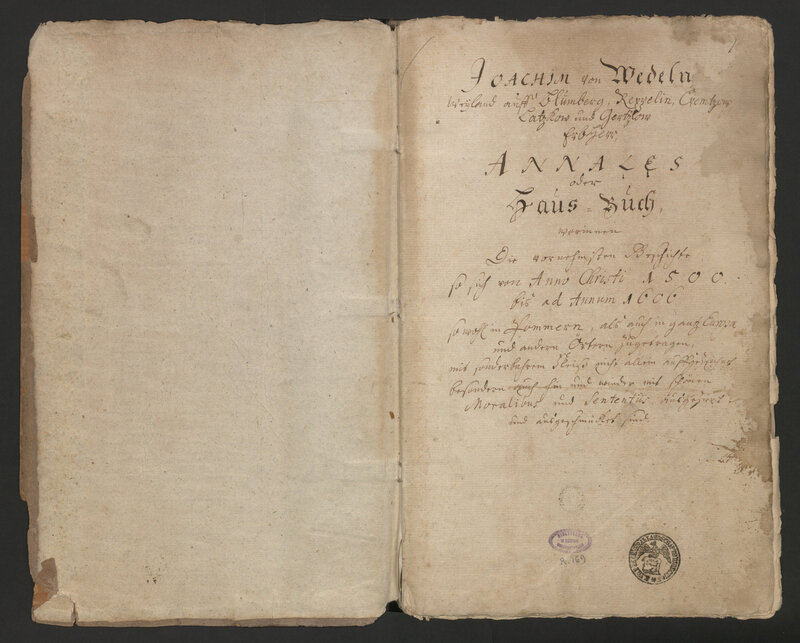 JOACHIM von Wedeln
Weyland auff Blumberg, Reppelin, Cremtzow
Latzkow und Gertzlow
ErbHerr,
ANNALES
oder
Haus-Buch,
worinnen
Die vornehmsten Geschichte
so sich von Anno Christi 1500.
bis ad Annum 1606
so wohl in Pommern, als auch in gantz Europa
und andern Örtern zugetragen,
mit sonderbahrem Fleiß nicht allein auffgezeichnet
besondern auch hin und wieder mit schönen
Moralibus und Sententiis
und ausgeschmücket sind